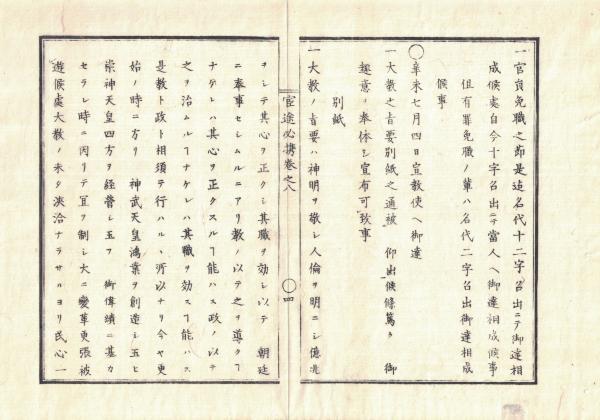 一官員免職之節是迄名代十二字召出ニテ御達相
成候處自今十字召出ニテ當人ヘ御達相成候事
但有罪免職ノ輩ハ名代二字召出御達相成
候事
〇辛未七月四日宣教使ヘ御達
一大教之旨要別紙之通被 仰出候條篤ク 御
趣意ノ奉体シ宣布可致事
別紙
一大教ノ旨要ハ神明ヲ敬シ人倫ヲ明ニシ億兆
官途必携巻之八
〇四
ヲシテ其心ヲ正クシ其職ヲ効シ以テ 朝廷
ニ奉事セシムルニアリ教ノ以テ之ヲ導クヿ
ナケレハ其心ヲ正クスルヿ能ハス政ノ以テ
之ヲ治ムルヿナケレハ其職ヲ効スヿ能ハス
是教ト政ト相須テ行ハルヽ所以ナリ今ヤ更
始ノ時ニ方リ 神武天皇鴻業ヲ創造シ玉ヒ
崇神天皇四方ヲ経營シ玉フ 御偉績ニ基カ
セラレ時ニ因リテ宜ヲ制シ大ニ變革更張被
遊候處大教ノ未タ浹洽ナラサルヨリ民心一